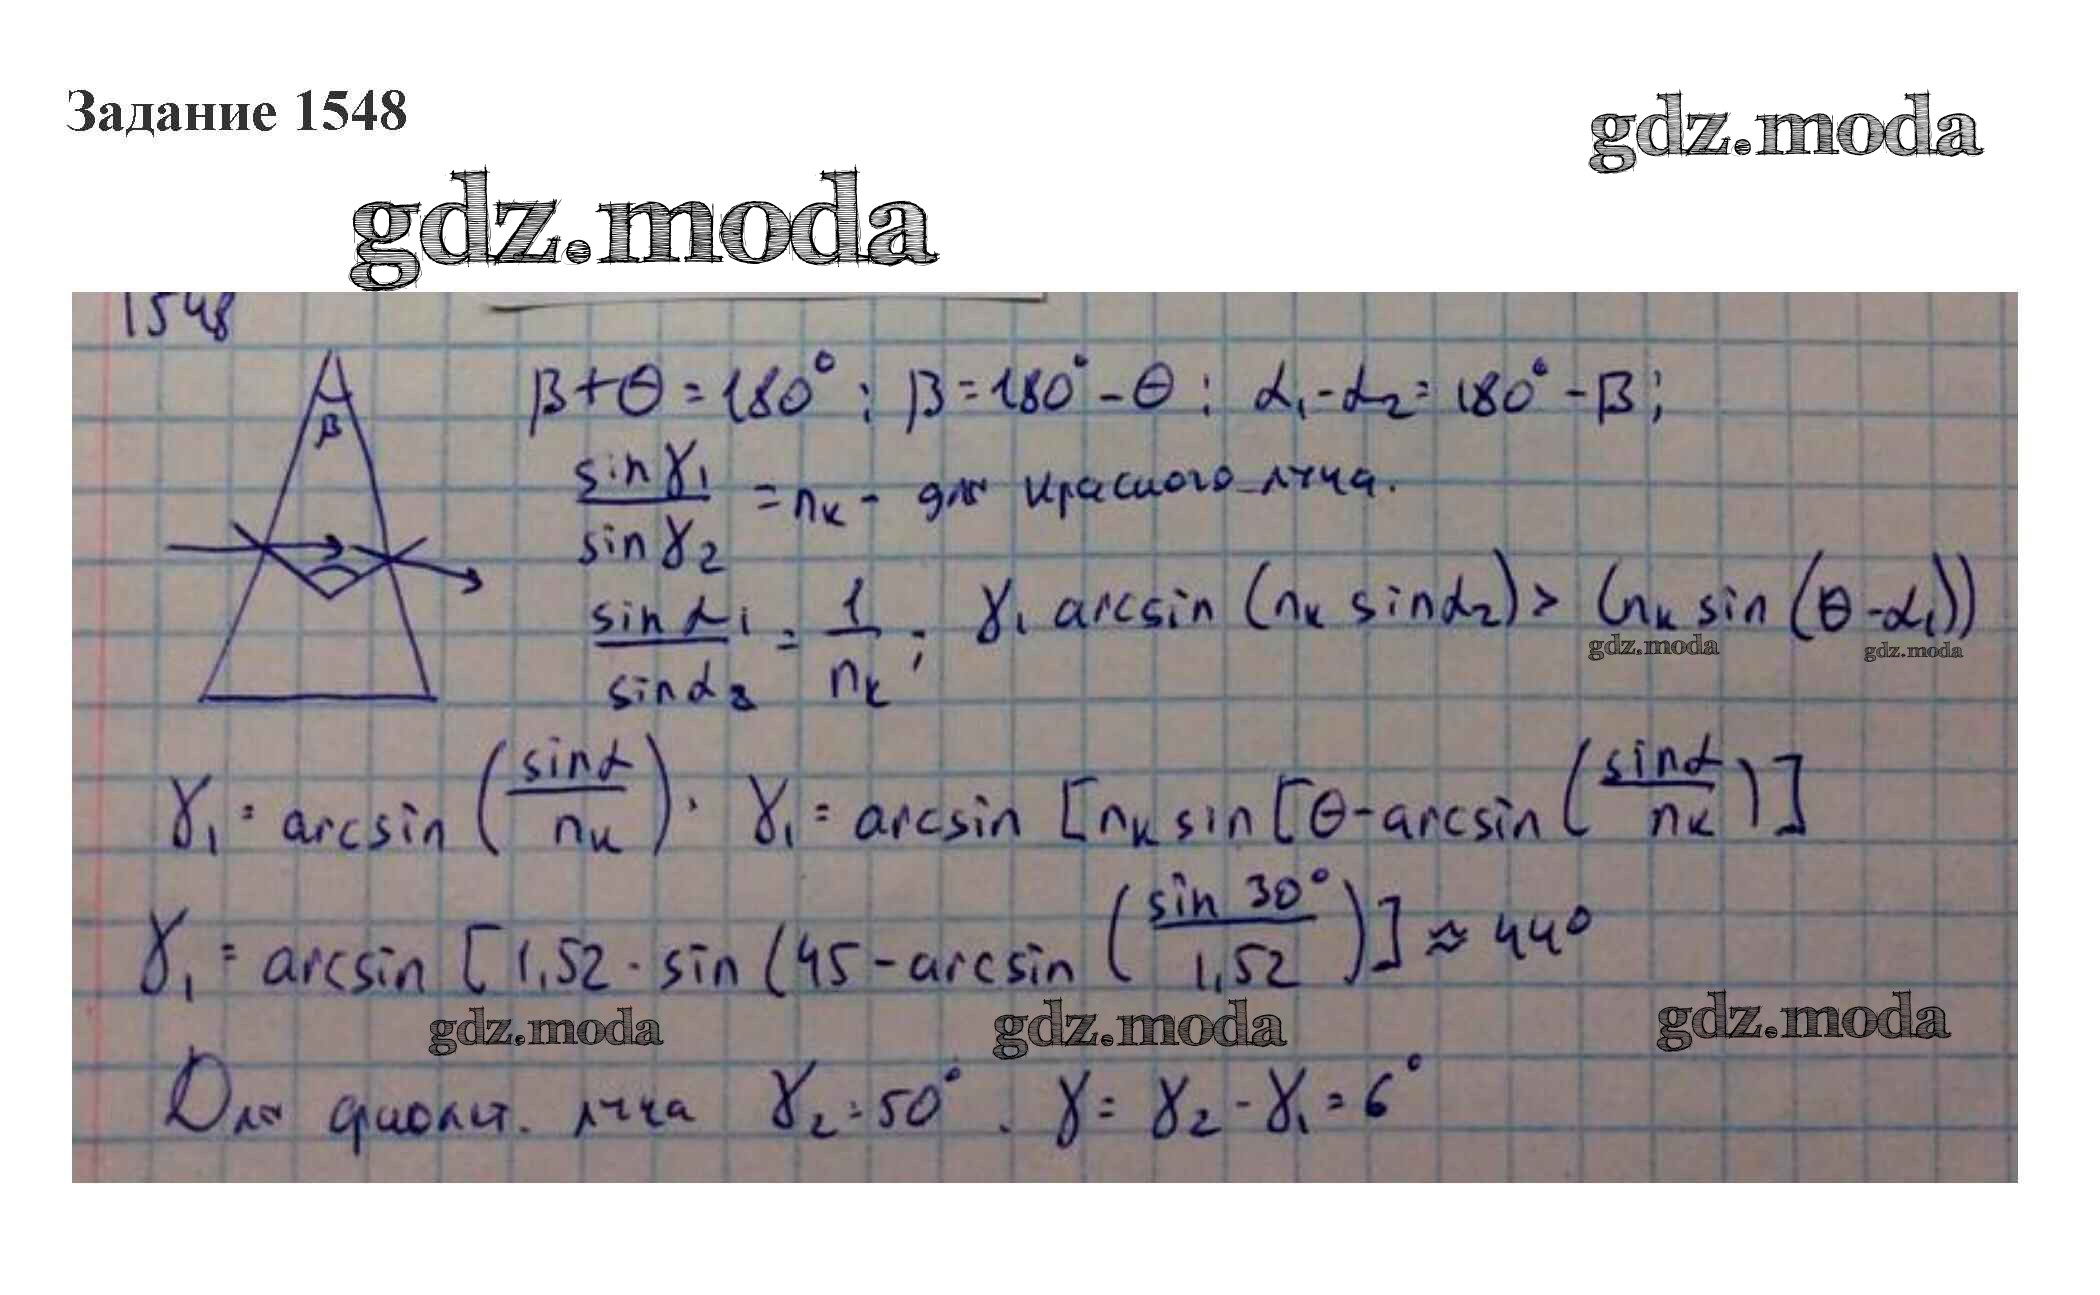 Задание 1548
gdz.moda
gdz.moda
1548
β
β + θ = 180° ; β = 180° - θ ; α₁ - α₂ = 180° - β ;
sin γ₁ / sin γ₂ = nк - для красного луча.
sin α₁ / sin α₂ = 1 / nк ; γ₁ arcsin (nк sin α₂) > (nк sin (θ - α₁))
gdz.moda
gdz.moda
γ₁ = arcsin (sin α / nк). γ₁ = arcsin [nк sin [θ - arcsin (sin α / nк)]
γ₁ = arcsin [1,52 · sin (45 - arcsin (sin 30° / 1,52)] ≈ 44°
gdz.moda gdz.moda gdz.moda
Для фиолет. луча γ₂ = 50° . γ = γ₂ - γ₁ = 6°